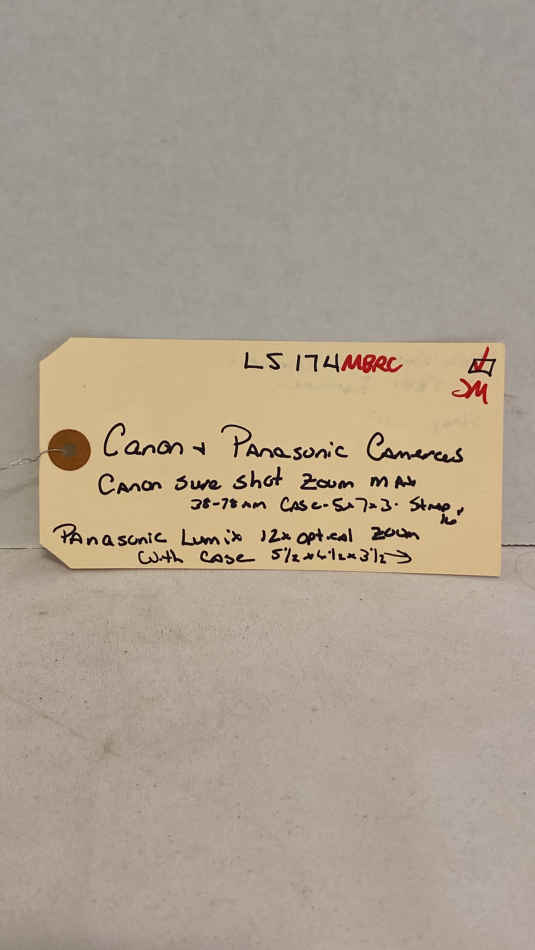 LS 174 MBRC
JM
Canon + Panasonic Cameras
Canon Sure Shot Zoom Max
38-78 mm Case-5x7x3. Strap
Panasonic Lumix 12x optical Zoom
With Case 5 1/2 x 6 1/2 x 3 1/2 →